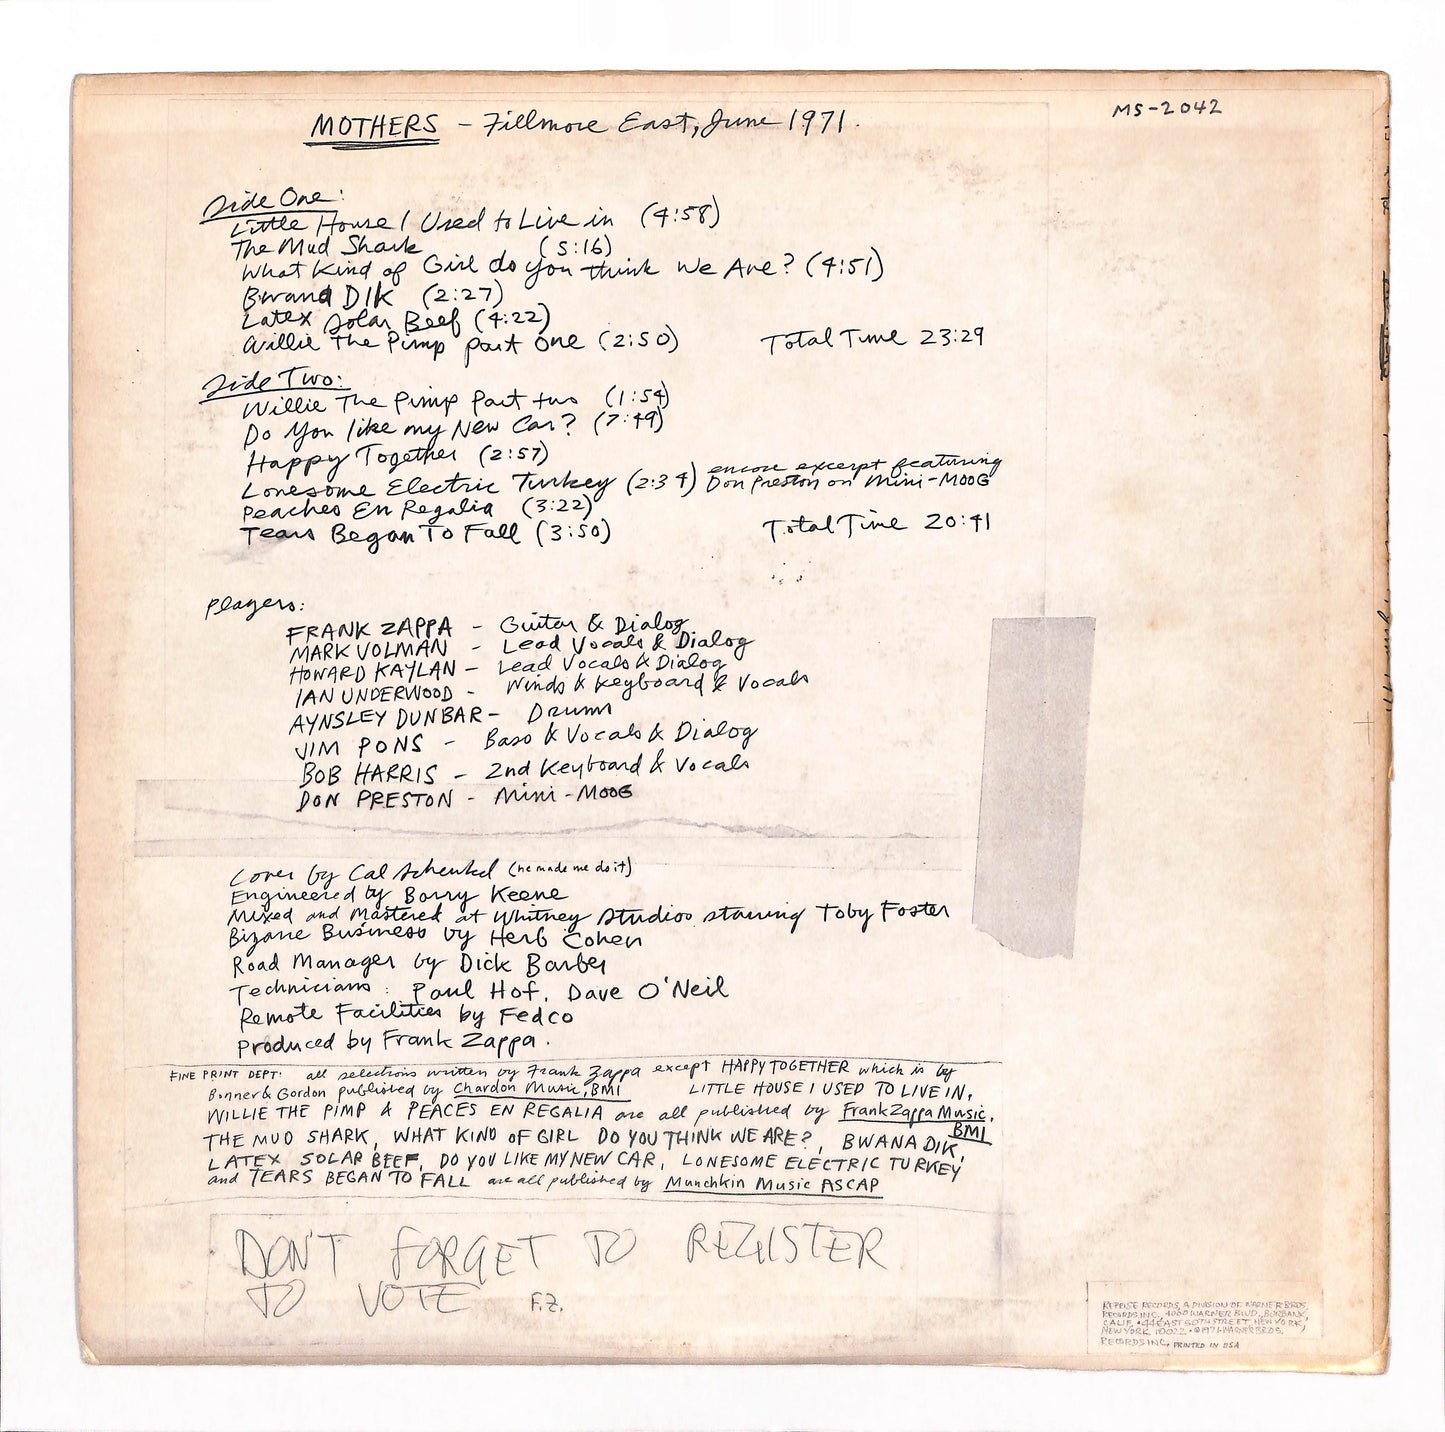 MOTHERS - Fillmore East, June 1971.
MS-2042
Side One:
Little House I Used to Live in (4:58)
The Mud Shark (5:16)
What Kind of Girl do you think We Are? (4:51)
Bwana DIK (2:27)
Latex Solar Beef (4:22)
Willie The Pimp part one (2:50) Total Time 23:29
Side Two:
Willie The Pimp Part two (1:54)
Do You like my New Car? (7:49)
Happy Together (2:57)
Lonesome Electric Turkey (2:34) encore excerpt featuring
Don Preston on Mini-MOOG
Peaches En Regalia (3:22)
Tears Began To Fall (3:50) Total Time 20:41
Players:
FRANK ZAPPA - Guitar & Dialog
MARK VOLMAN - Lead Vocals & Dialog
HOWARD KAYLAN - Lead Vocals & Dialog
IAN UNDERWOOD - Winds & Keyboard & Vocals
AYNSLEY DUNBAR - Drums
JIM PONS - Bass & Vocals & Dialog
BOB HARRIS - 2nd Keyboard & Vocals
DON PRESTON - Mini-MOOG
Cover by Cal Schenkel (he made me do it)
Engineered by Barry Keene
Mixed and Mastered at Whitney Studios starring Toby Foster
Bizarre Business by Herb Cohen
Road Manager by Dick Barber
Technicians: Paul Hof, Dave O'Neil
Remote Facilities by Fedco
Produced by Frank Zappa.
FINE PRINT DEPT: all selections written by Frank Zappa except HAPPY TOGETHER which is by
Bonner & Gordon published by Chardon Music, BMI LITTLE HOUSE I USED TO LIVE IN,
WILLIE THE PIMP & PEACES EN REGALIA are all published by Frank Zappa Music,
BMI
THE MUD SHARK, WHAT KIND OF GIRL DO YOU THINK WE ARE?, BWANA DIK,
LATEX SOLAR BEEF, DO YOU LIKE MY NEW CAR, LONESOME ELECTRIC TURKEY
and TEARS BEGAN TO FALL are all published by Munchkin Music ASCAP
DON'T FORGET TO REGISTER
TO VOTE F.Z.
REPRISE RECORDS, A DIVISION OF WARNER BROS.
RECORDS INC., 4000 WARNER BLVD., BURBANK,
CALIF. • 44 EAST 50TH STREET, NEW YORK,
NEW YORK 10022 • ©1971 WARNER BROS.
RECORDS INC. PRINTED IN USA